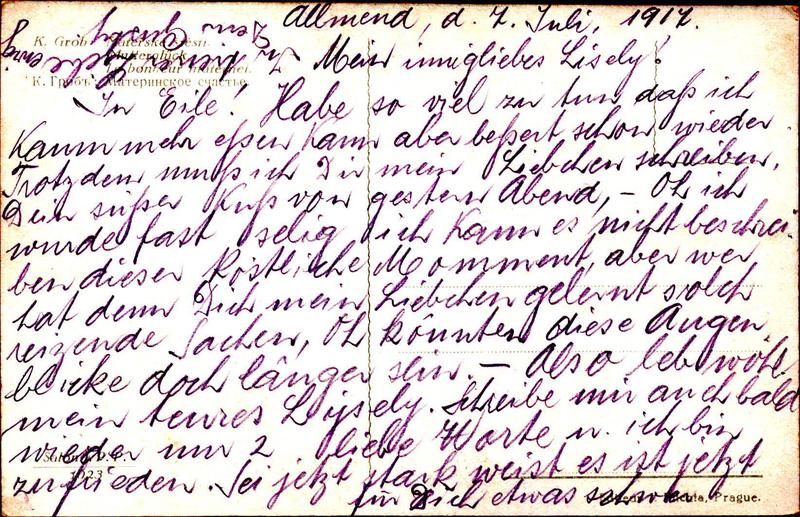 Allmend, d. 7. Juli, 1917.
K. Grob
Mutterglück
bonheur maternel.
К. Гробъ. Материнское счастье.
Mein innigliebes Lisely!
In Eile! Habe so viel zu tun daß ich
kaum mehr eßen kann aber beßert schon wieder.
Trotzdem muß ich Dir mein Liebchen schreiben.
Dein süßer Kuß von gestern Abend, – Oh ich
wurde fast selig ich kann es nicht beschrei-
ben dieser köstliche Momment, aber wer
hat denn Dich mein Liebchen gelernt solch
reizende Sachen, Oh könnten diese Augen
blicke doch länger sein. – Also leb wohl
mein teures Lysely. Schreibe mir auch bald
wieder nur 2 liebe Worte u. ich bin
zufrieden. Sei jetzt stark weist es ist jetzt
für Dich etwas schwer
Dein
Prague.